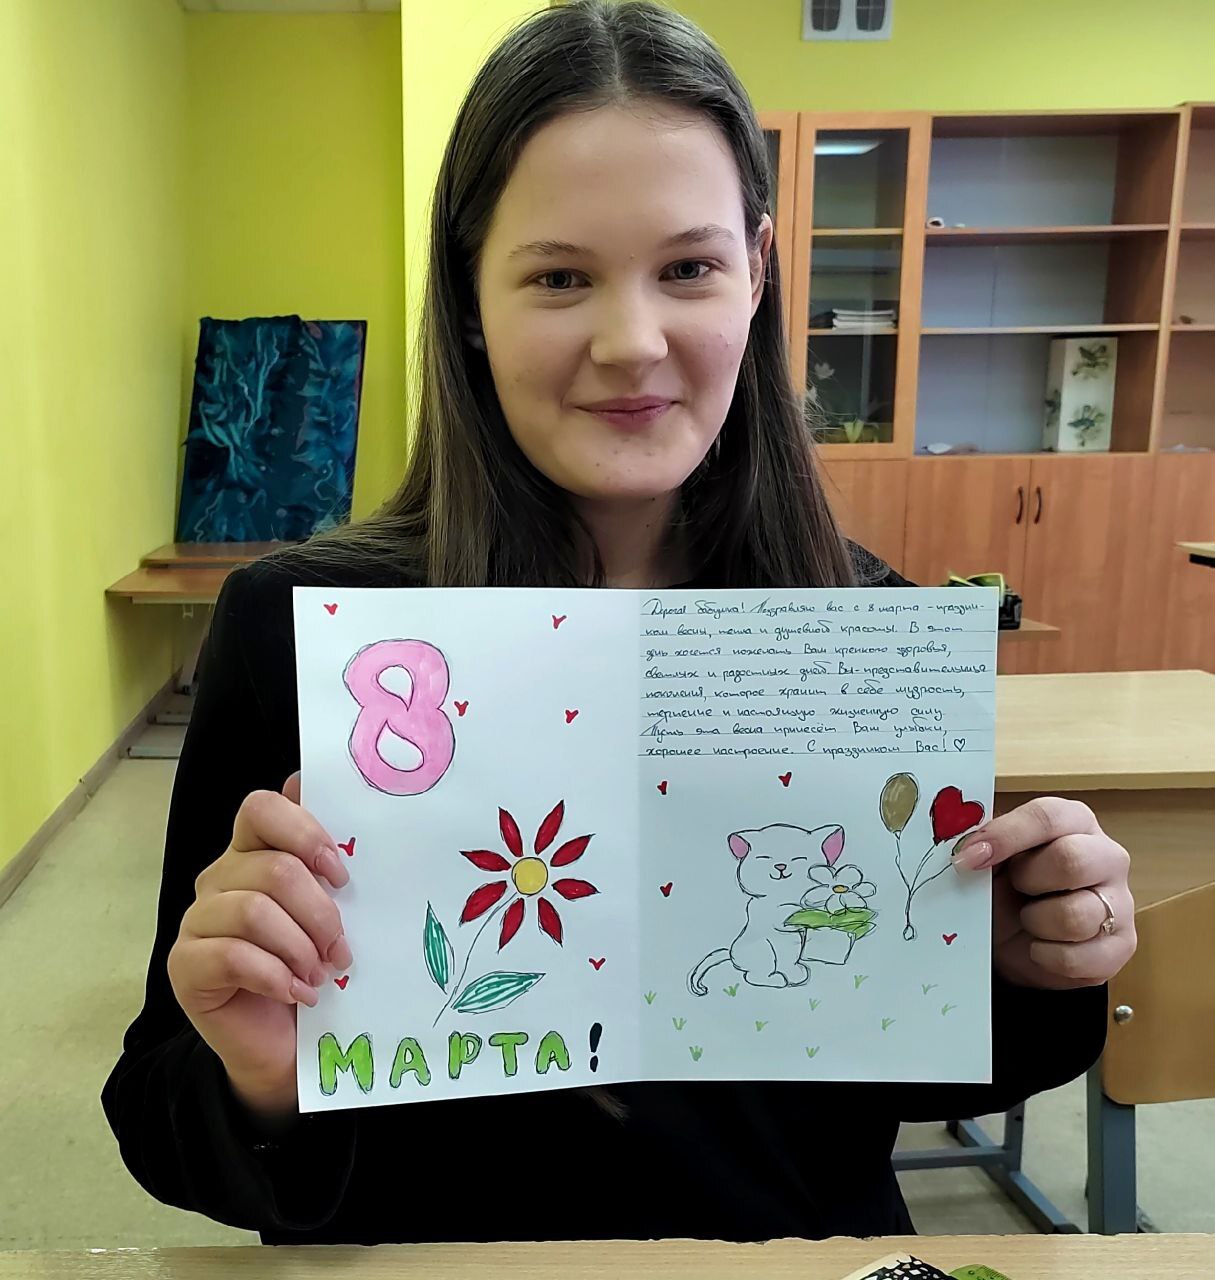 8
МАРТА!
Дорогая бабушка! Поздравляю вас с 8 марта - праздни-
ком весны, тепла и душевной красоты. В этот
день хочется пожелать Вам крепкого здоровья,
светлых и радостных дней. Вы - представительница
поколения, которое хранит в себе мудрость,
терпение и настоящую жизненную силу.
Пусть эта весна принесёт Вам улыбки,
хорошее настроение. С праздником Вас! ♡